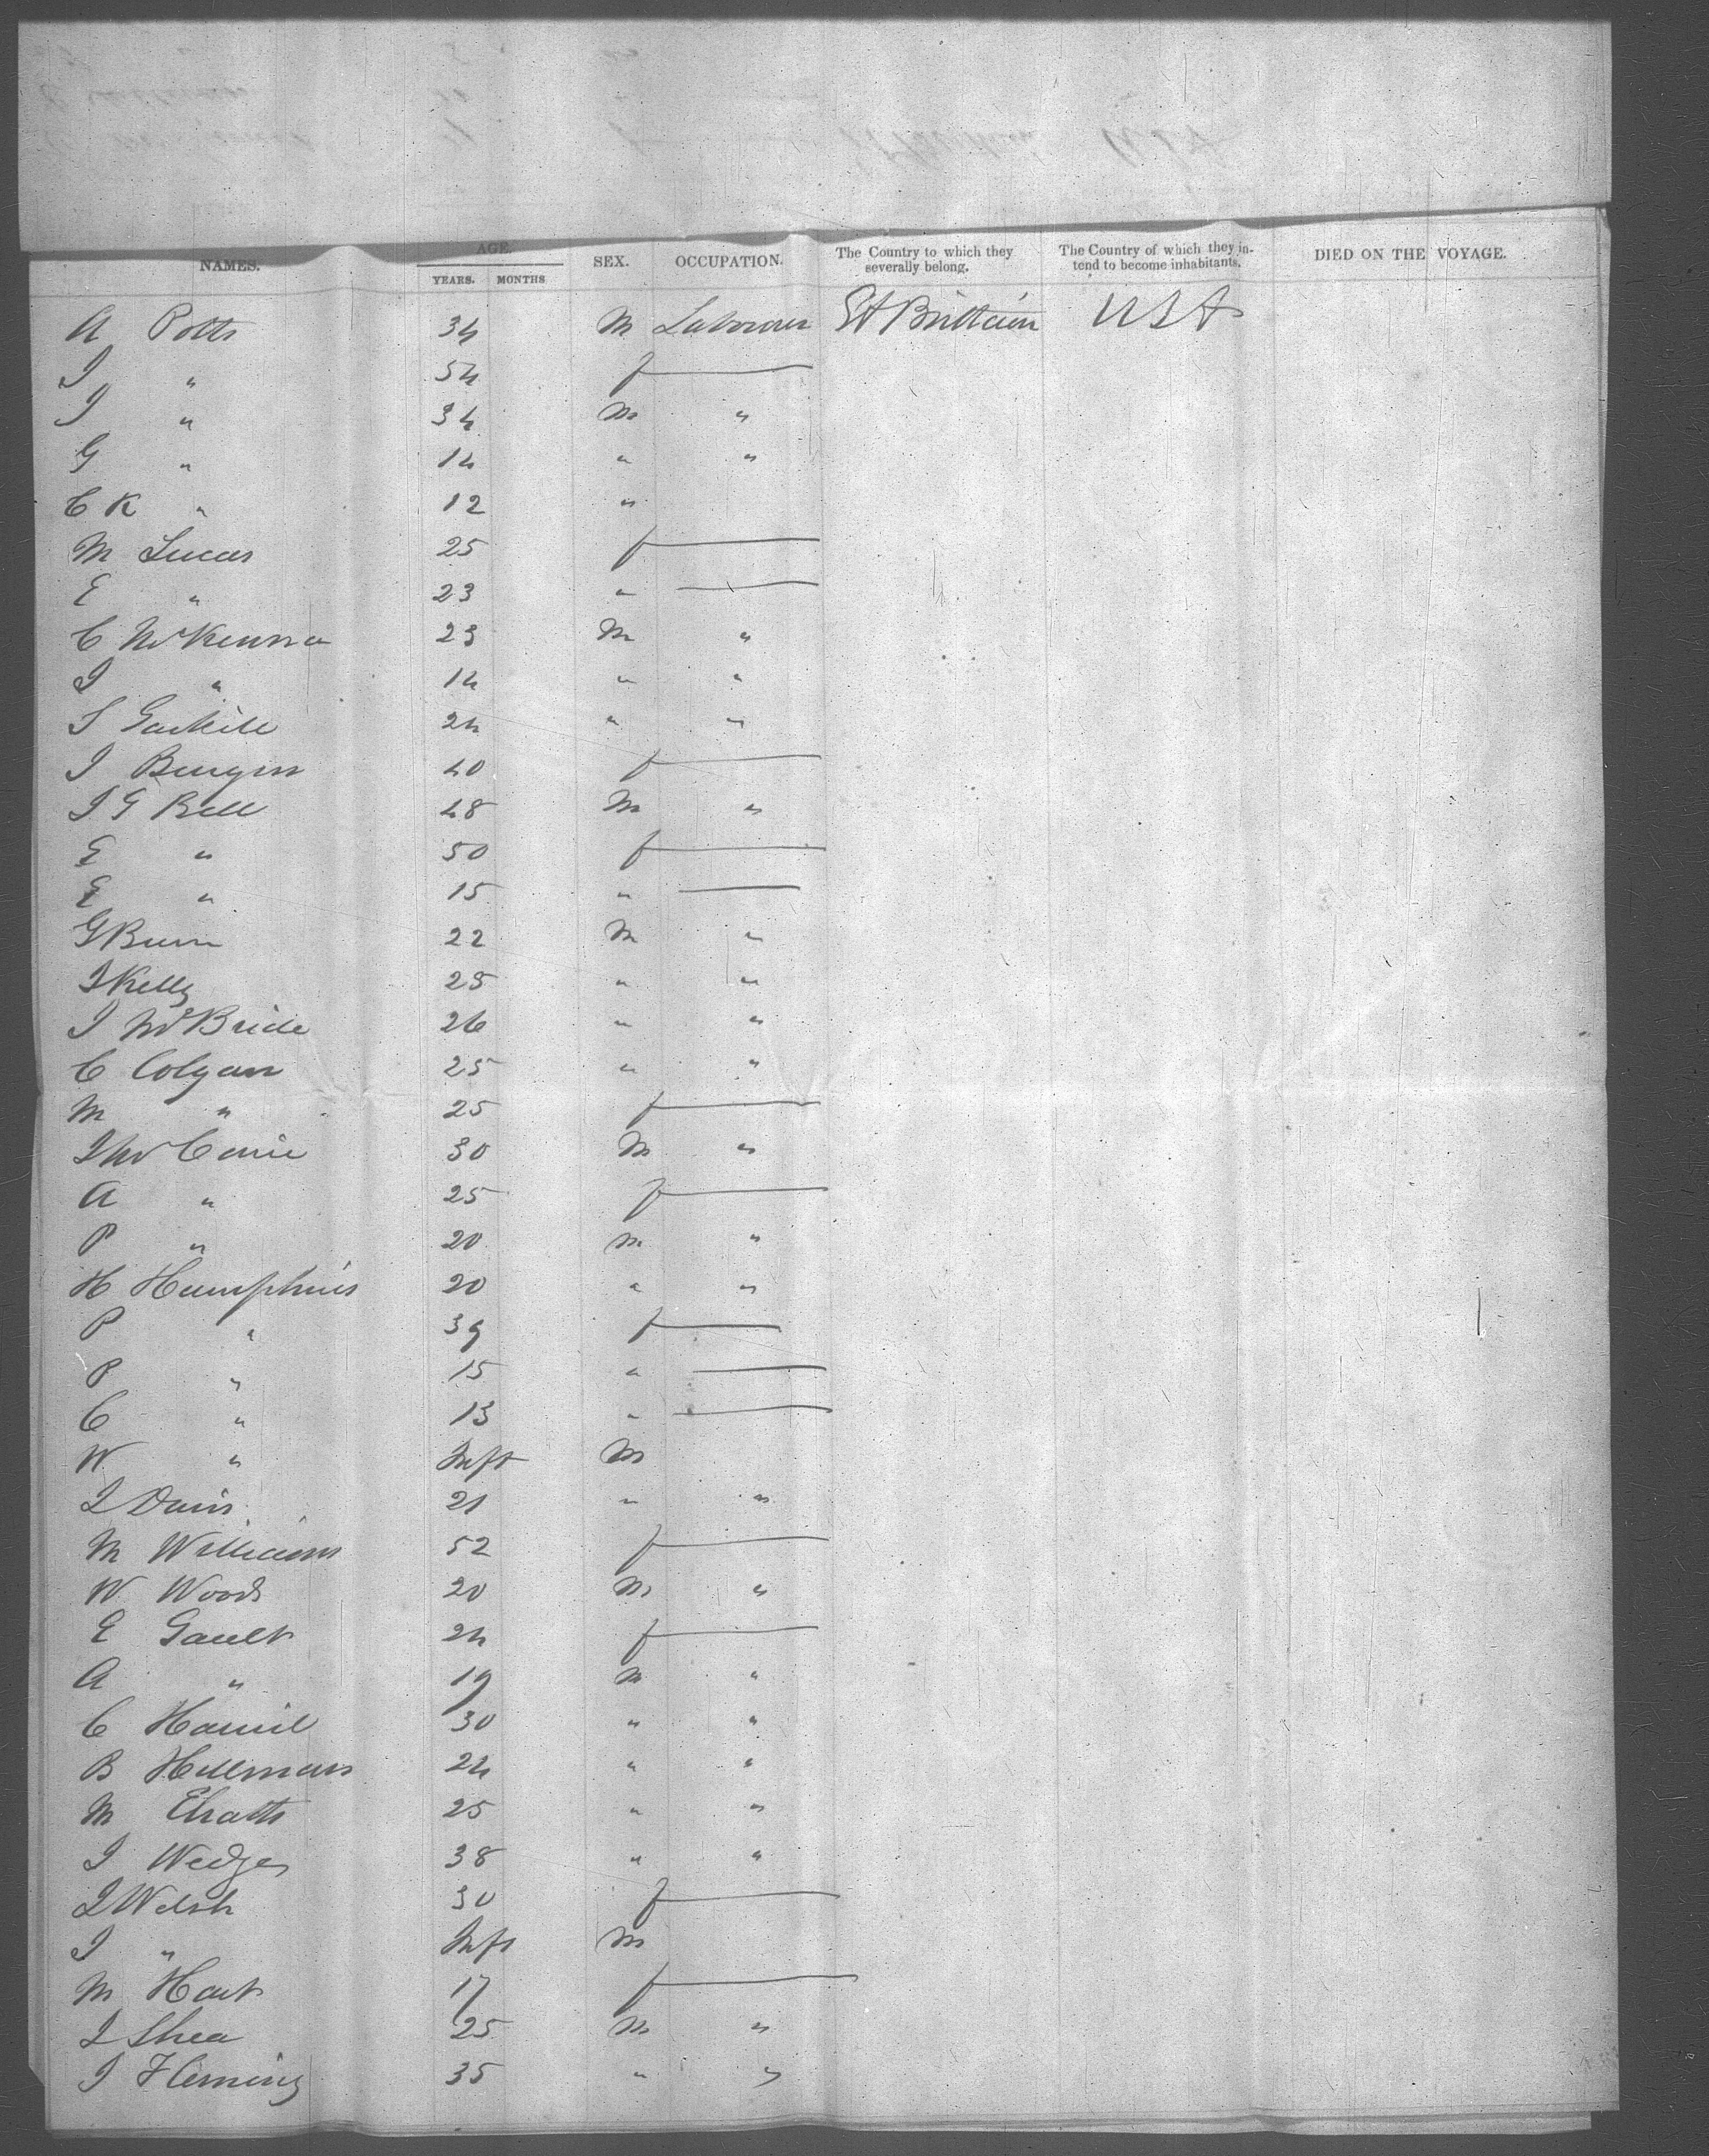 NAMES. AGE. SEX. OCCUPATION. The Country to which they severally belong. The Country of which they intend to become inhabitants. DIED ON THE VOYAGE.
YEARS. MONTHS
A Potts 34 M Labourer Gt Brittain USA
J " 54 f —
J " 34 M "
G " 14 " "
C K " 12 "
M Lucas 25 f —
E " 23 " —
C McKenna 23 M "
J " 14 " "
S Gaskill 24 " "
J 40 f —
J G Bell 48 M "
E " 50 f —
E " 15 " —
G Burn 22 M "
J Kelly 25 " "
J McBride 26 " "
C Colgan 25 " "
M " 25 f —
J 30 M "
A " 25 f —
P " 20 M "
H Humphries 20 " "
P " 39 f —
P " 15 " —
C " 13 " —
W " Inft M
J Davis 21 " "
M Williams 52 f —
W Woods 20 M "
E Gault 24 f —
A " 19 M "
C Hamil 30 " "
B Hillman 24 " "
M 25 " "
J Wedge 38 " "
J Welsh 30 f —
J " Inft M
M Hart 17 f —
J Shea 25 M "
J Fleming 35 " "